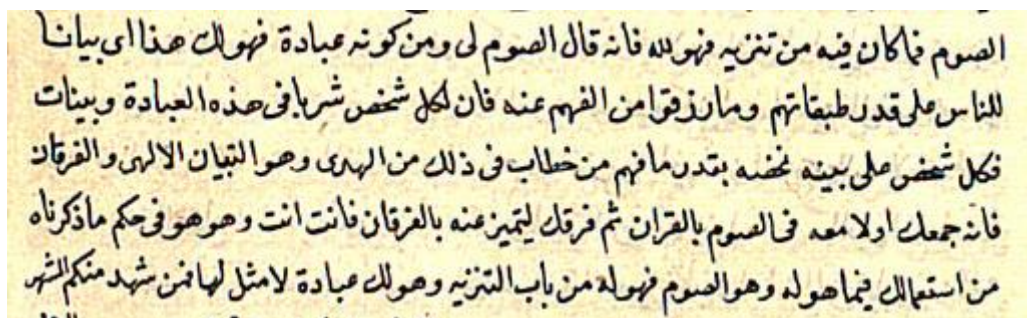 الصوم فما كان فيه من تنزيه فهو لله فانه قال الصوم لى ومن كونه عبادة فهو لك هذا اى بيانا
للناس على قدر طبقاتهم ومارزقوا من الفهم عنه فان لكل شخص شربا فى هذه العبادة وبينات
فكل شخص على بينه تخصه بقدر ما فهم من خطاب فى ذلك من الهدى وهو التبيان الالهى والفرقان
فانه جمعك اولا معه فى الصوم بالقران ثم فرقك ليتميز عنه بالفرقان فانت انت وهو هو فى حكم ماذكرناه
من استعمالك فيما هو له وهو الصوم فهو له من باب التنزيه وهو لك عبادة لا مثل لها فمن شهد منكم الشهر